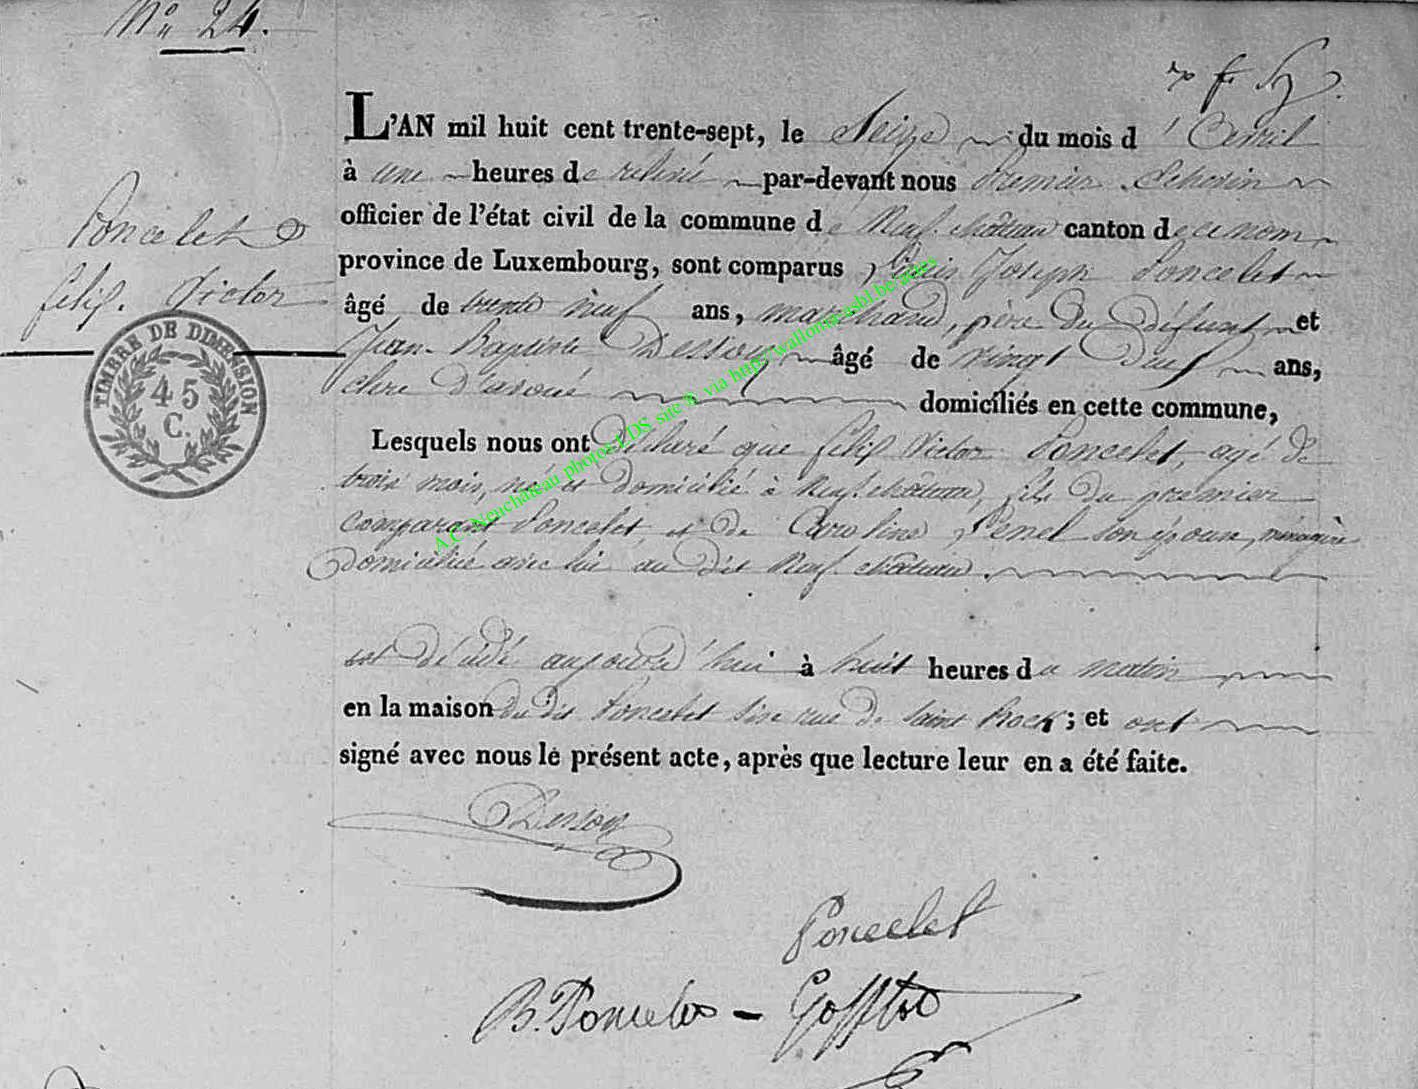 N° 24.
L'AN mil huit cent trente-sept, le Seize du mois d'Avril
à une heures de relevé par-devant nous premier Echevin
officier de l'état civil de la commune de Neufchâteau canton de ce nom
province de Luxembourg, sont comparus Louis Joseph Poncelet
âgé de trente neuf ans, marchand, père du défunt et
Jean Baptiste Dessoy âgé de vingt deux ans,
clerc d'avoué domiciliés en cette commune,
Lesquels nous ont déclaré que félix Victor Poncelet, agé de
trois mois, né et domicilié à Neufchâteau, fils du premier
comparant Poncelet, et de Caroline son epouse, ménagère
domiciliée avec lui au dit Neufchâteau.
est décédé aujourd'hui à huit heures du matin
en la maison du dit Poncelet Sise rue de Saint Rock; et ont
signé avec nous le présent acte, après que lecture leur en a été faite.
Poncelet
félix Victor
TIMBRE DE DIMENSION
45
C.
A.C. Neuchâteau photos LDS site & via http://wallonia-asbl.be/actes
Dessoy
Poncelet
B. Poncelet -